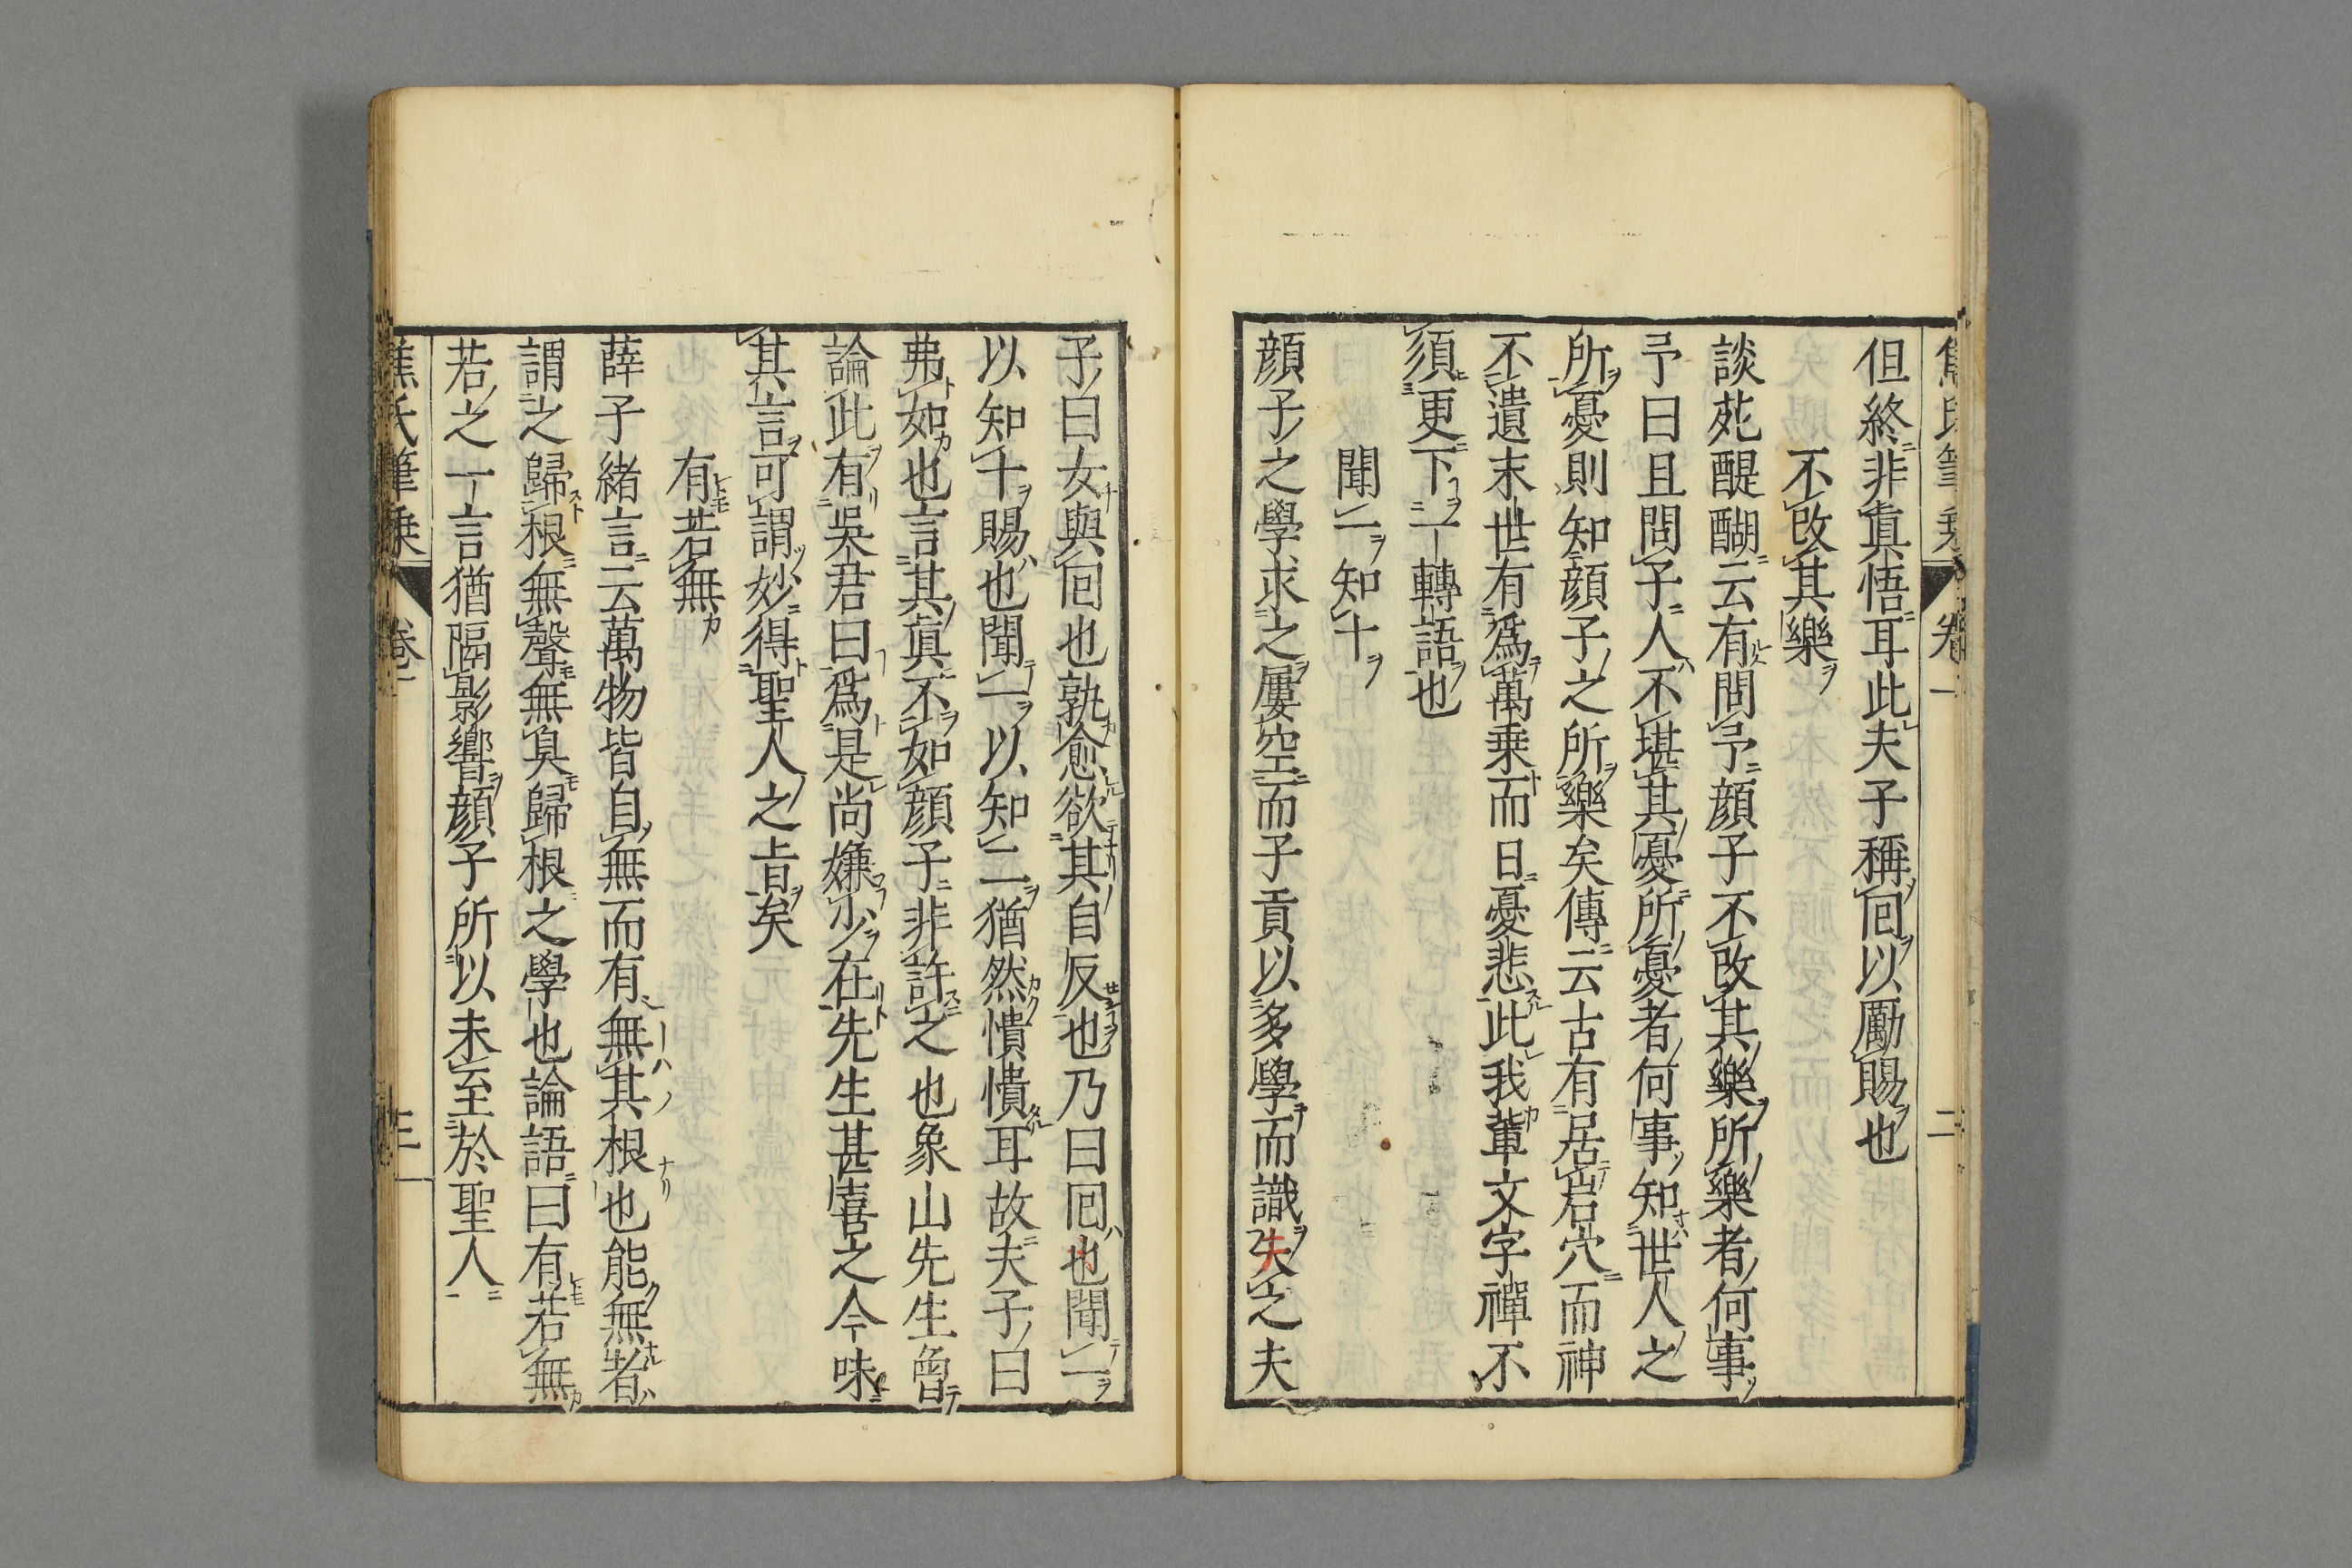 焦氏筆乗 卷一 二
但終非眞悟耳此夫子稱囘以勵賜也
不改其樂
談苑醍醐云有問予顔子不改其樂所樂者何事
予曰且問子人不堪其憂所憂者何事知世人之
所憂則知顔子之所樂矣傳云古有居岩穴而神
不遺末世有爲萬乗而日憂悲此我輩文字禪不
須更下一轉語也
聞一知十
顔子之學求之屢空而子貢以多學而識失之夫
子曰女與囘也孰愈欲其自反也乃曰囘也聞一
以知十賜也聞一以知二猶然憒憒耳故夫子曰
弗如也言其眞不如顔子非許之也象山先生曾
論此有吳君曰爲是尚嫌少在先生甚喜之今味
其言可謂妙得聖人之旨矣
有若無
薛子緒言云萬物皆自無而有無其根也能無者
謂之歸根無聲無臭歸根之學也論語曰有若無
若之一言猶隔影響顔子所以未至於聖人
焦氏筆乗 卷一 三